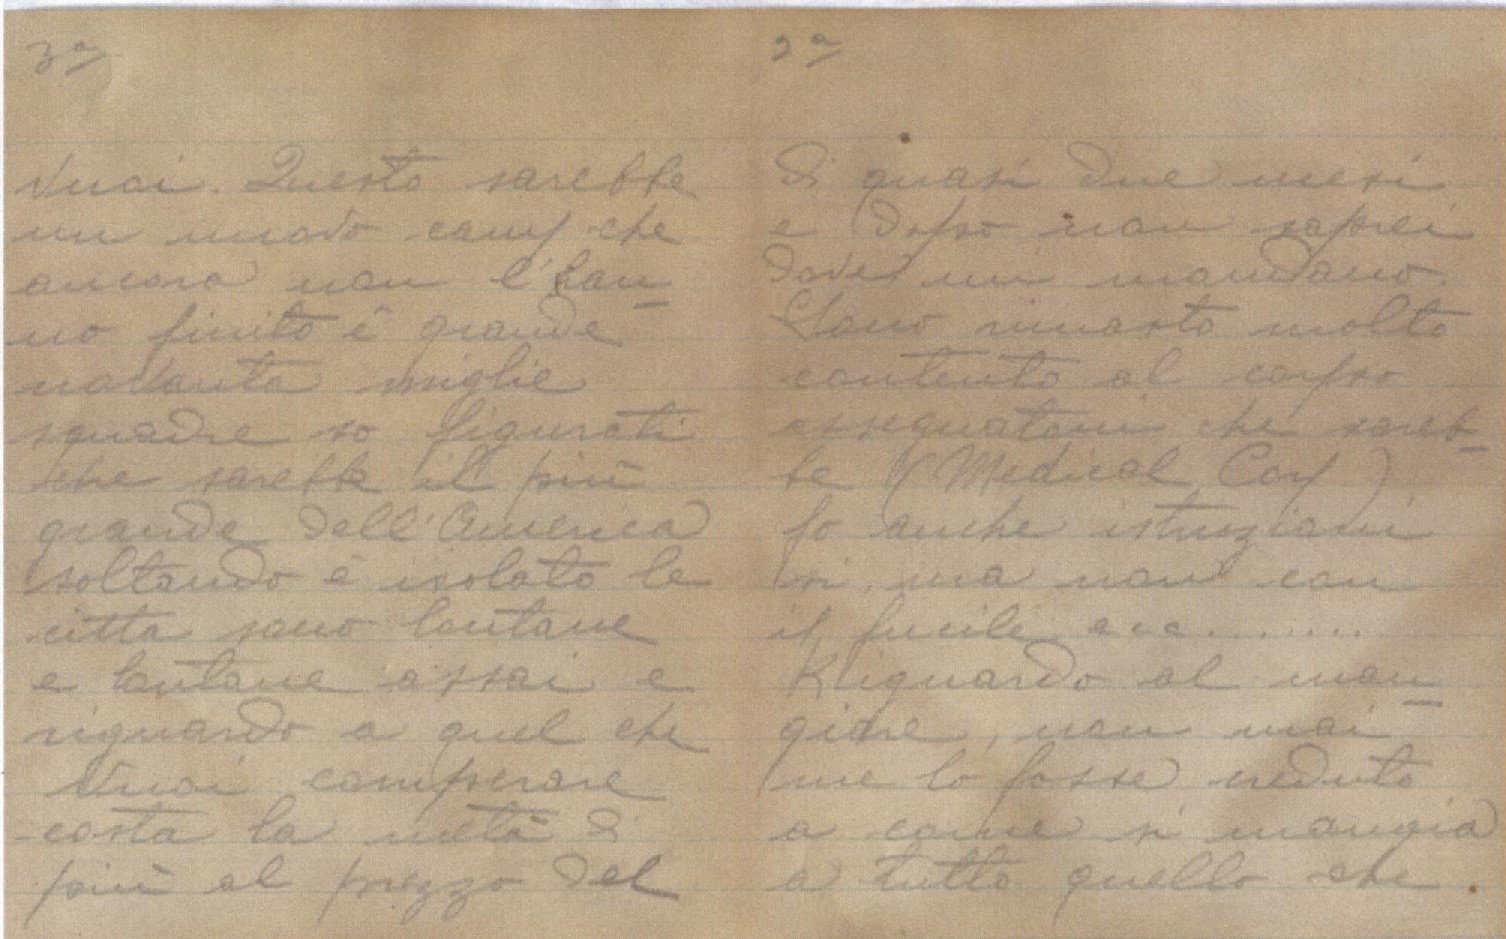 2ª
di quasi due mesi
e dopo non saprei
dove mi mandano.
Sono rimasto molto
contento al corpo
assegnatomi che sareb-
be (Medical Corp)
fo anche istruzioni
si, ma non con
il fucile ecc.......
Riguardo al man-
giare, non mai
me lo fosse creduto
a come si mangia
a tutto quello che
3ª
vuoi. Questo sarebbe
un nuovo camp che
ancora non l'han-
no finito è grande
novanta miglie
squadre so figurati
che sarebbe il più
grande dell'America
soltando è isolato le
citta sono lontane
e lontane assai e
riguardo a quel che
vuoi comperare
costa la metà di
più al prezzo del